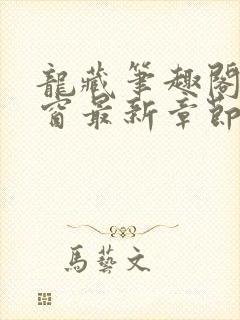 龍藏筆趣閣
窗最新章節
馬藝文